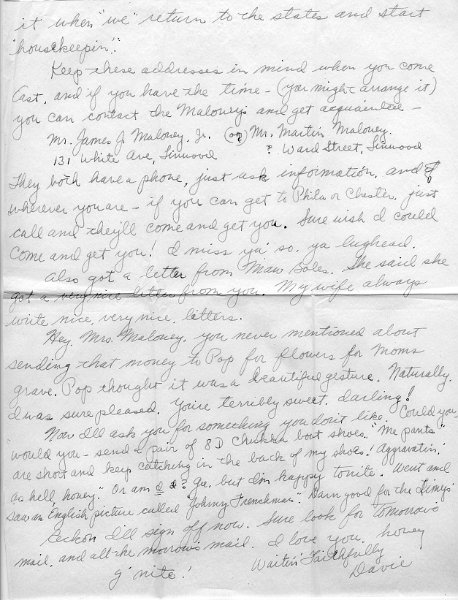 it when "we" return to the states and start
"housekeepin".
Keep these addresses in mind when you come
East, and if you have the time - (you might arrange it)
you can contact the Maloneys and get acquainted -
Mr. James J Maloney, Jr. (or) Mr. Martin Maloney.
131 White Ave, Linwood ? Ward Street, Linwood
They both have a phone, just ask information, and
wherever you are - if you can get to Phila or Chester, just
call and they'll come and get you. Sure wish I could
come and get you! I miss ya' so, ya lughead.
Also got a letter from Maw Boles. She said she
got a very nice letter from you. My wife always
write nice, very nice, letters.
Hey, Mrs. Maloney, you never mentioned about
sending that money to Pop for flowers for Moms
grave. Pop thought it was a beautiful gesture. Naturally,
I was sure pleased. You're terribly sweet, darling!
Now I'll ask you for something you don't like. Could you
would you - send a pair of 8D Chukka boot shoes. "Me pants"
are short and keep catching in the back of my shoes! Aggravatin'
as hell, honey." Or am I? Ya, but I'm happy tonite. Went and
saw an English picture called "Johnny Frenchman." Darn good for the Limeys.
Reckon I'll sign off now. Sure look for tomorrows
mail, and all the morrows mail. I love you, honey
Waitin' Faithfully
G'nite! Davie